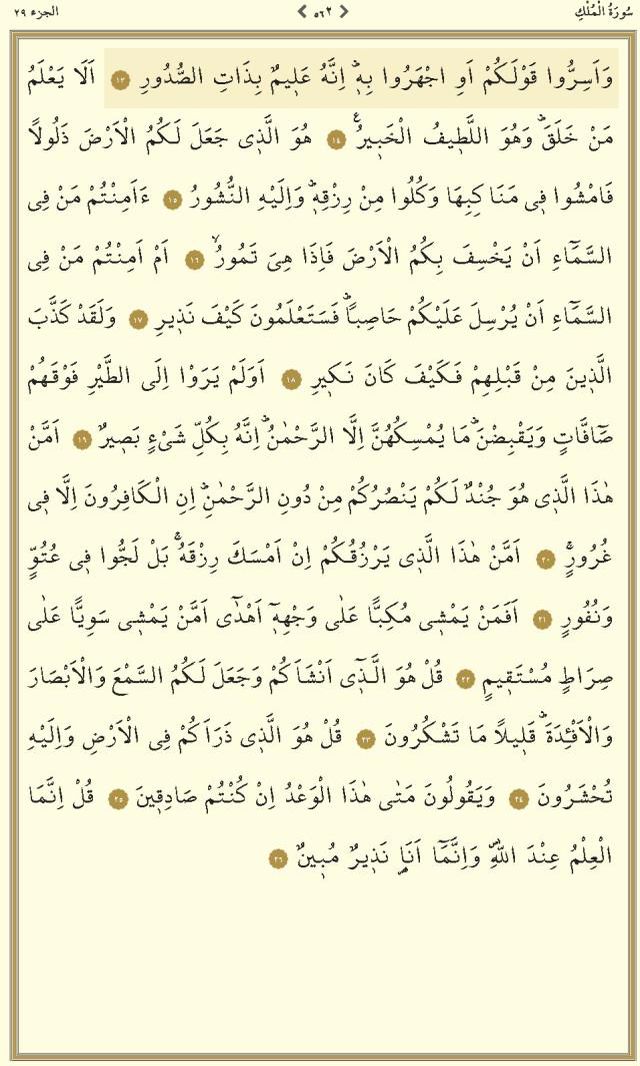 سُورَةُ الْمُلْكِ ٥٦٢ الجزء ٢٩
وَاَسِرُّوا قَوْلَكُمْ اَوِ اجْهَرُوا بِهِۜ اِنَّهُ عَلٖيمٌ بِذَاتِ الصُّدُورِ ١٣ اَلَا يَعْلَمُ
مَنْ خَلَقَۜ وَهُوَ اللَّطٖيفُ الْخَبٖيرُࣖ ١٤ هُوَ الَّذٖى جَعَلَ لَكُمُ الْاَرْضَ ذَلُولًا
فَامْشُوا فٖى مَنَاكِبِهَا وَكُلُوا مِنْ رِزْقِهٖۜ وَاِلَيْهِ النُّشُورُ ١٥ ءَاَمِنْتُمْ مَنْ فِى
السَّمَٓاءِ اَنْ يَخْسِفَ بِكُمُ الْاَرْضَ فَاِذَا هِىَ تَمُورُۙ ١٦ اَمْ اَمِنْتُمْ مَنْ فِى
السَّمَٓاءِ اَنْ يُرْسِلَ عَلَيْكُمْ حَاصِباًۜ فَسَتَعْلَمُونَ كَيْفَ نَذٖيرِ ١٧ وَلَقَدْ كَذَّبَ
الَّذٖينَ مِنْ قَبْلِهِمْ فَكَيْفَ كَانَ نَكٖيرِ ١٨ اَوَلَمْ يَرَوْا اِلَى الطَّيْرِ فَوْقَهُمْ
صَٓافَّاتٍ وَيَقْبِضْنَۜ مَا يُمْسِكُهُنَّ اِلَّا الرَّحْمٰنُۜ اِنَّهُ بِكُلِّ شَىْءٍ بَصٖيرٌ ١٩ اَمَّنْ
هٰذَا الَّذٖى هُوَ جُنْدٌ لَكُمْ يَنْصُرُكُمْ مِنْ دُونِ الرَّحْمٰنِۜ اِنِ الْكَافِرُونَ اِلَّا فٖى
غُرُورٍۚ ٢٠ اَمَّنْ هٰذَا الَّذٖى يَرْزُقُكُمْ اِنْ اَمْسَكَ رِزْقَهُۚ بَلْ لَجُّوا فٖى عُتُوٍّ
وَنُفُورٍ ٢١ اَفَمَنْ يَمْشٖى مُكِبًّا عَلٰى وَجْهِهٖٓ اَهْدٰٓى اَمَّنْ يَمْشٖى سَوِيًّا عَلٰى
صِرَاطٍ مُسْتَقٖيمٍ ٢٢ قُلْ هُوَ الَّذٖٓى اَنْشَاَكُمْ وَجَعَلَ لَكُمُ السَّمْعَ وَالْاَبْصَارَ
وَالْاَفْـِٔدَةَۜ قَلٖيلًا مَا تَشْكُرُونَ ٢٣ قُلْ هُوَ الَّذٖى ذَرَاَكُمْ فِى الْاَرْضِ وَاِلَيْهِ
تُحْشَرُونَ ٢٤ وَيَقُولُونَ مَتٰى هٰذَا الْوَعْدُ اِنْ كُنْتُمْ صَادِقٖينَ ٢٥ قُلْ اِنَّمَا
الْعِلْمُ عِنْدَ اللّٰهِۖ وَاِنَّمَٓا اَنَا۬ نَذٖيرٌ مُبٖينٌ ٢٦